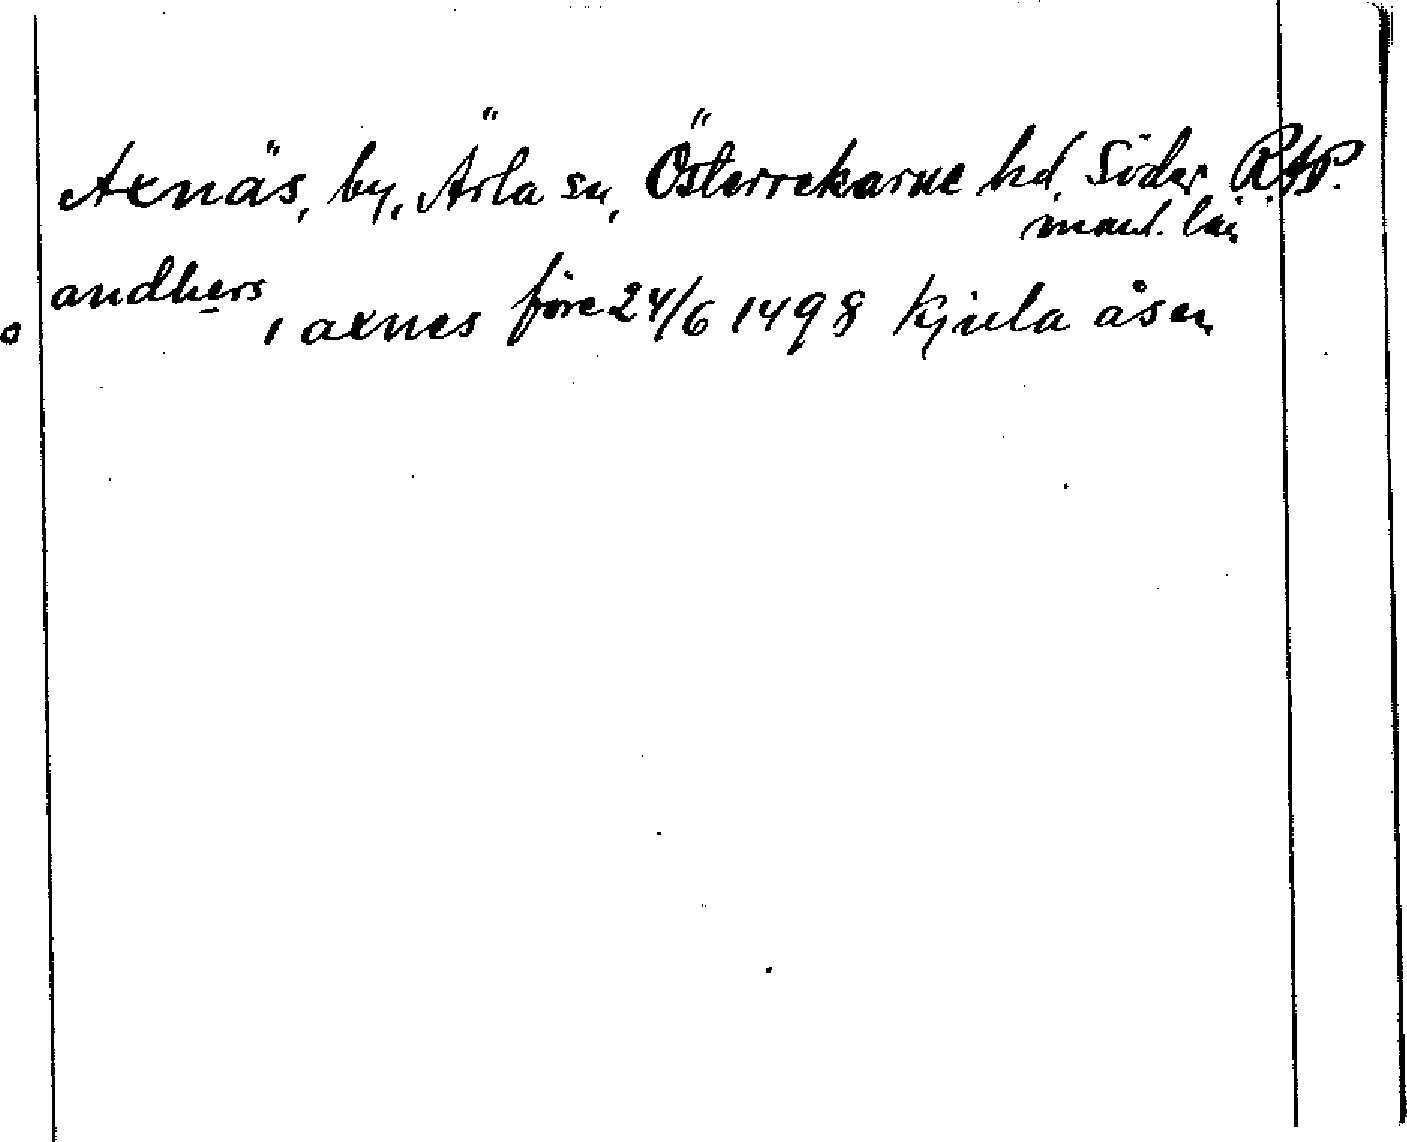 Axnäs, by, Ärla sn, Österrekarne hd, Söder R.A.P.
manl. län
andhers i axnes före 24/6 1498 Kjula åsen